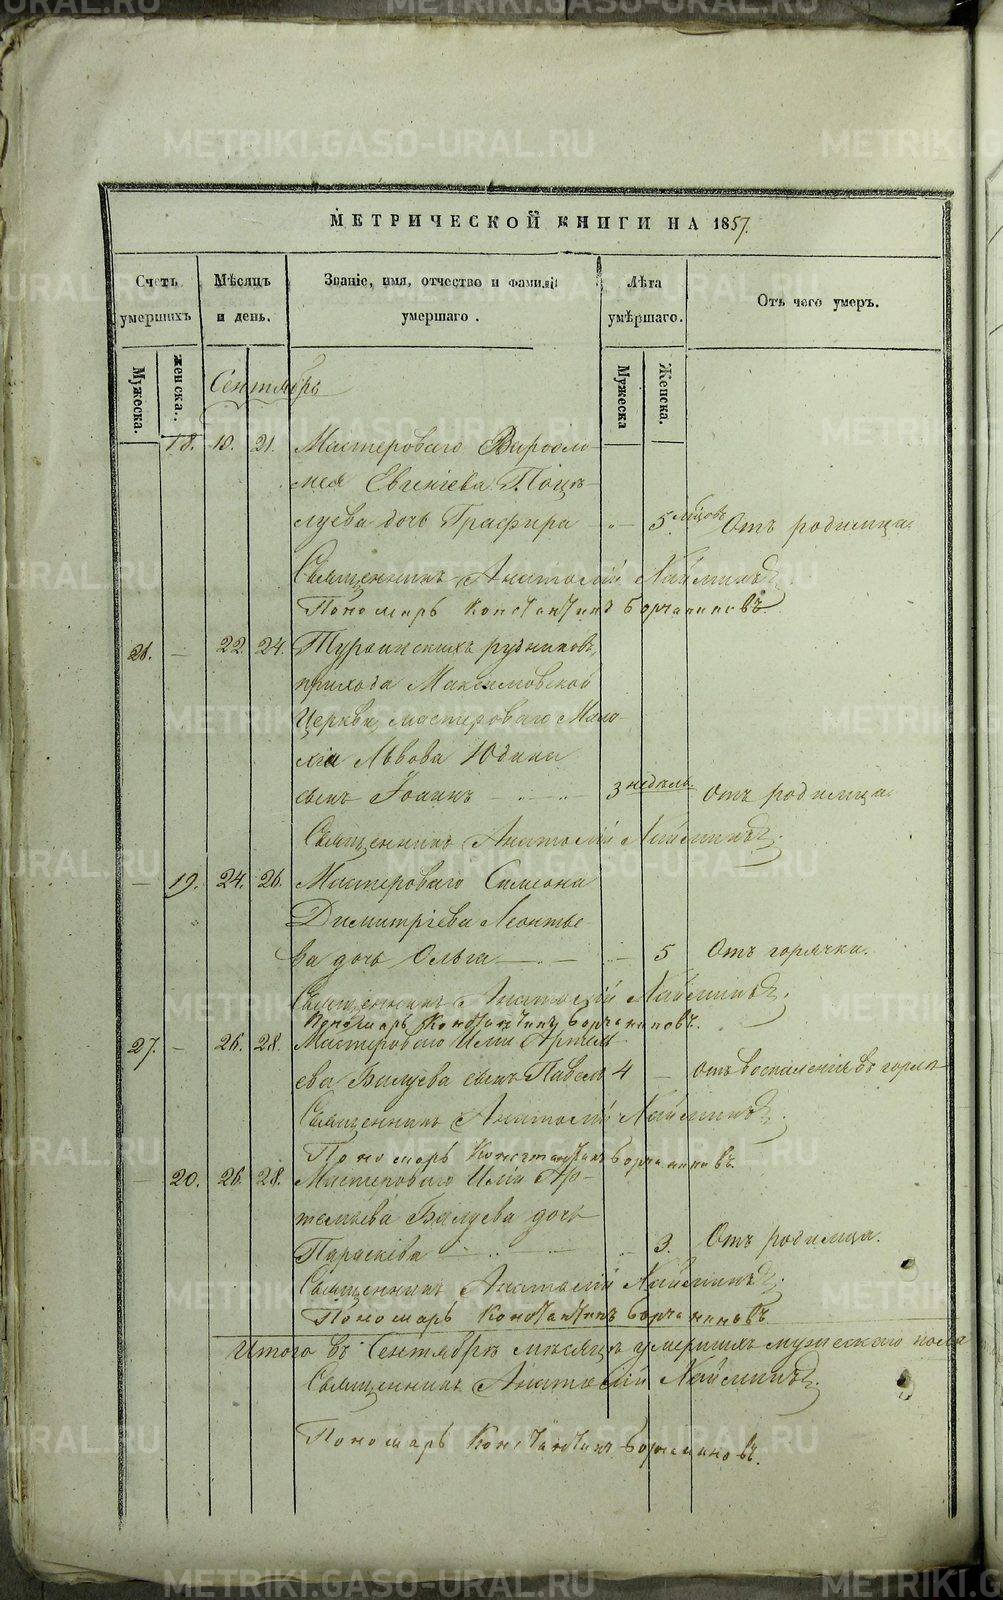 METRIKI.GASO-URAL.RU
МЕТРИЧЕСКОЙ КНИГИ НА 1857.
Счетъ умершихъ
Мѣсяцъ и день.
Званіе, имя, отчество и фамилія умершаго.
Лѣта умѣршаго.
Отъ чего умеръ.
Мужеска.
женска.
Мужеска
Женска.
Сентябрь
18. 10. 21. Мастероваго Варѳоло-
мея Евгеніева Поцѣ-
луева дочь Графира 5 мѣсцовъ Отъ родимца.
Священникъ Анатолій
Пономарь Константинъ
26. 22. 24. Турьинскихъ рудниковъ,
прихода Максимовской
Церкви, мастероваго Мала-
хіи Львова Юдина
сынъ Іоаннъ 3 недѣль Отъ родимца.
Священникъ Анатолій
19. 24. 26. Мастероваго Симеона
Димитріева Леонтье
ва дочь Ольга 5 Отъ горячки.
Священникъ Анатолій
Пономарь Константинъ
27. 26. 28. Мастероваго Иліи Артемь
ева Балуева сынъ Павелъ 4 Отъ воспаленія въ горлѣ
Священникъ Анатолій
Пономарь Константинъ
20. 26. 28. Мастероваго Иліи Ар-
темьева Балуева дочь
Параскева 3. Отъ родимца.
Священникъ Анатолій
Пономарь Константинъ
Итого въ Сентябрѣ мѣсяцѣ умершихъ мужескаго пола
Священникъ Анатолій
Пономарь Константинъ